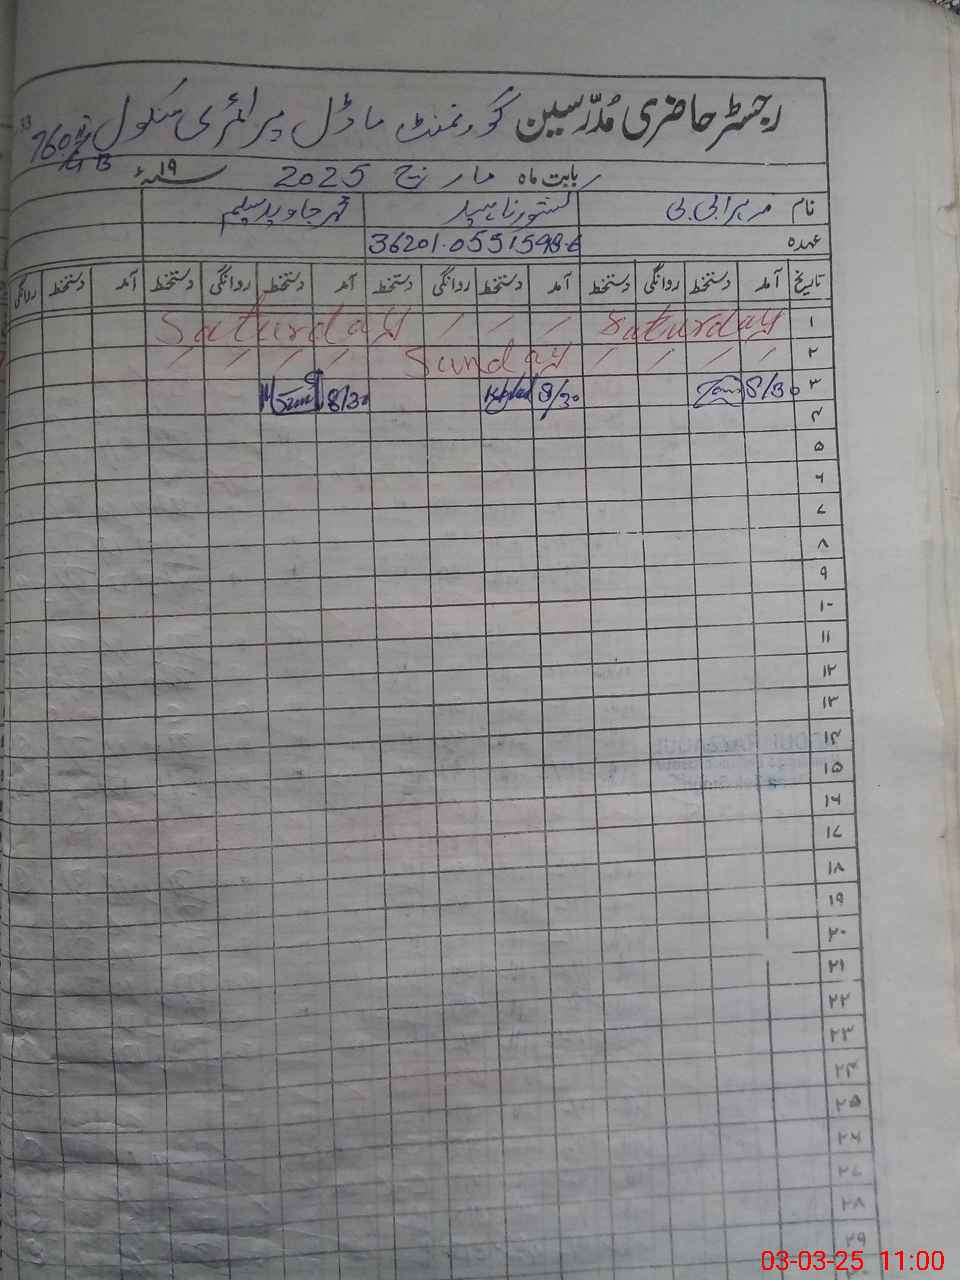 رجسٹر حاضری مُدرّسین گورنمنٹ ماڈل پرائمری سکول 760 GB
بابت ماہ مارچ 2025 ۱۹ سنہء
نام کشور ناہید محمد جاوید سلیم
عہدہ 36201-0551598-6
تاریخ آمد دستخط روانگی دستخط آمد دستخط روانگی دستخط آمد دستخط روانگی دستخط آمد دستخط روانگی
۱ Saturday / / / Saturday
۲ / / / / Sunday / / / /
۳ 8/30 8/30 8/30
۴
۵
۶
۷
۸
۹
۱۰
۱۱
۱۲
۱۳
۱۴
۱۵
۱۶
۱۷
۱۸
۱۹
۲۰
۲۱
۲۲
۲۳
۲۴
۲۵
۲۶
۲۷
۲۸
۲۹
03-03-25 11:00